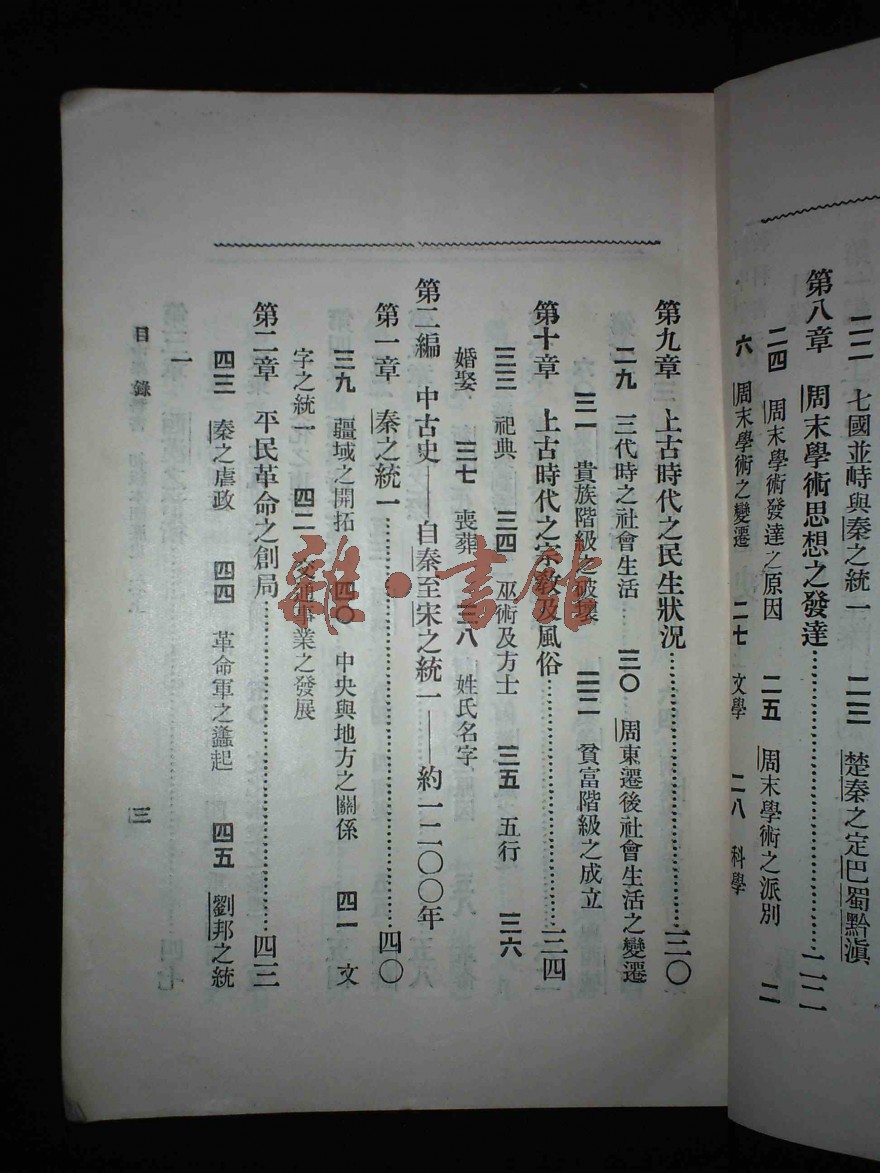 二二　七國並峙與秦之統一　二三　楚秦之定巴蜀黔滇
第八章　周末學術思想之發達……………二二
二四　周末學術發達之原因　二五　周末學術之派別　二
六　周末學術之變遷　二七　文學　二八　科學
第九章　上古時代之民生狀況……………三〇
二九　三代時之社會生活　三〇　周東遷後社會生活之變遷
三一　貴族階級之破壞　三二　貧富階級之成立
第十章　上古時代之宗教及風俗……………三四
三三　祀典　三四　巫術及方士　三五　五行　三六
婚娶　三七　喪葬　三八　姓氏名字
第二編　中古史——自秦至宋之統一——約一二〇〇年
第一章　秦之統一……………四〇
三九　疆域之開拓　四〇　中央與地方之關係　四一　文
字之統一　四二　交通事業之發展
第二章　平民革命之創局……………四三
四三　秦之虐政　四四　革命軍之蠭起　四五　劉邦之統
一
目錄
三
雜·書館